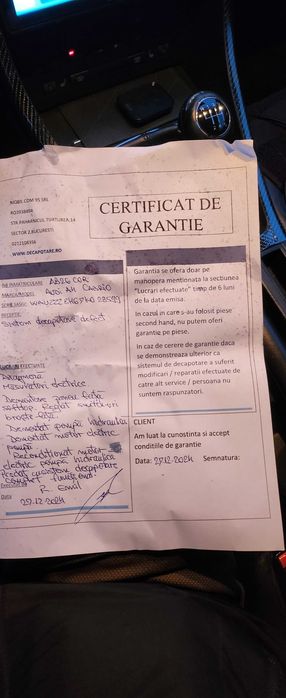 NIOBIL COM 95 SRL
STR.PAHARNICUL TURTUREA,14
SECTOR 2,BUCURESTI
0212106356
WWW.DECAPOTARE.RO
CERTIFICAT DE
GARANTIE
NR.INMATRICULARE
MARCA/MODEL Audi A4 Cabrio
SERIE SASIU
RECEPTIE:
Sistem decapotare defect
LUCRARI EFECTUATE
Diagnoza
Masuratori electrice
Demontare
softtop. Reglat
broasca
Demontat pompă hidraulica
Demontat motor electric
pompă
Reconditionat motor
electric pompă hidraulica
decapotare
Executant
R. Emil
Data
27.12.2024
Garantia se ofera doar pe
manopera mentionata la sectiunea
"Lucrari efectuate" timp de 6 luni
de la data emisa.
In cazul in care s-au folosit piese
second hand, nu putem oferi
garantie pe piese.
In caz de cerere de garantie daca
se demonstreaza ulterior ca
sistemul de decapotare a suferit
modificari / reparatii efectuate de
catre alt service / persoana nu
suntem raspunzatori.
CLIENT
Am luat la cunostinta si accept
conditiile de garantie
Data: 27.12.2024 Semnatura: